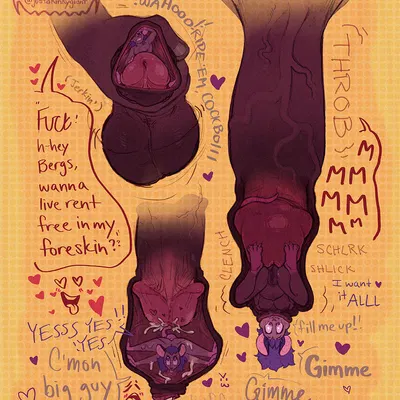 WAHOOO! RIDE 'EM, COCKBO!!!
THROB
(Jerkin')
"FUCK!
h-hey
Bergs,
wanna
live rent
free in my
foreskin?"
M
MM
MM
M M
CLENCH
SCHLRK
SHLICK
I want
it ALLL
fill me up!!
YESSS YES !!
YES
C'mon
big guy
Gimme
Gimme